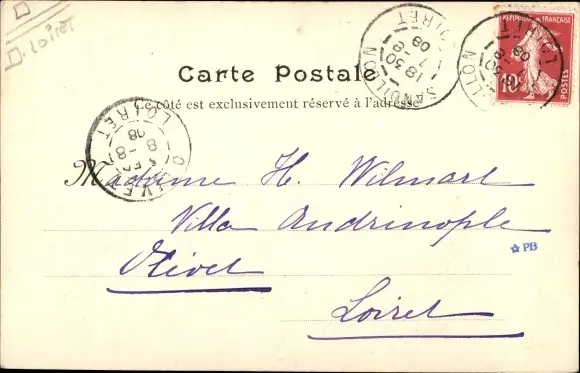 D. Loiret
RÉPUBLIQUE FRANÇAISE
10c
POSTES
SANDILLON
LOIRET
18 50
7 - 8
08
Carte Postale
Ce côté est exclusivement réservé à l'adresse
OLIVET
LOIRET
8 - 8
08
Madame H. Wilmart
Villa Andrinople
Olivet
Loiret
PB